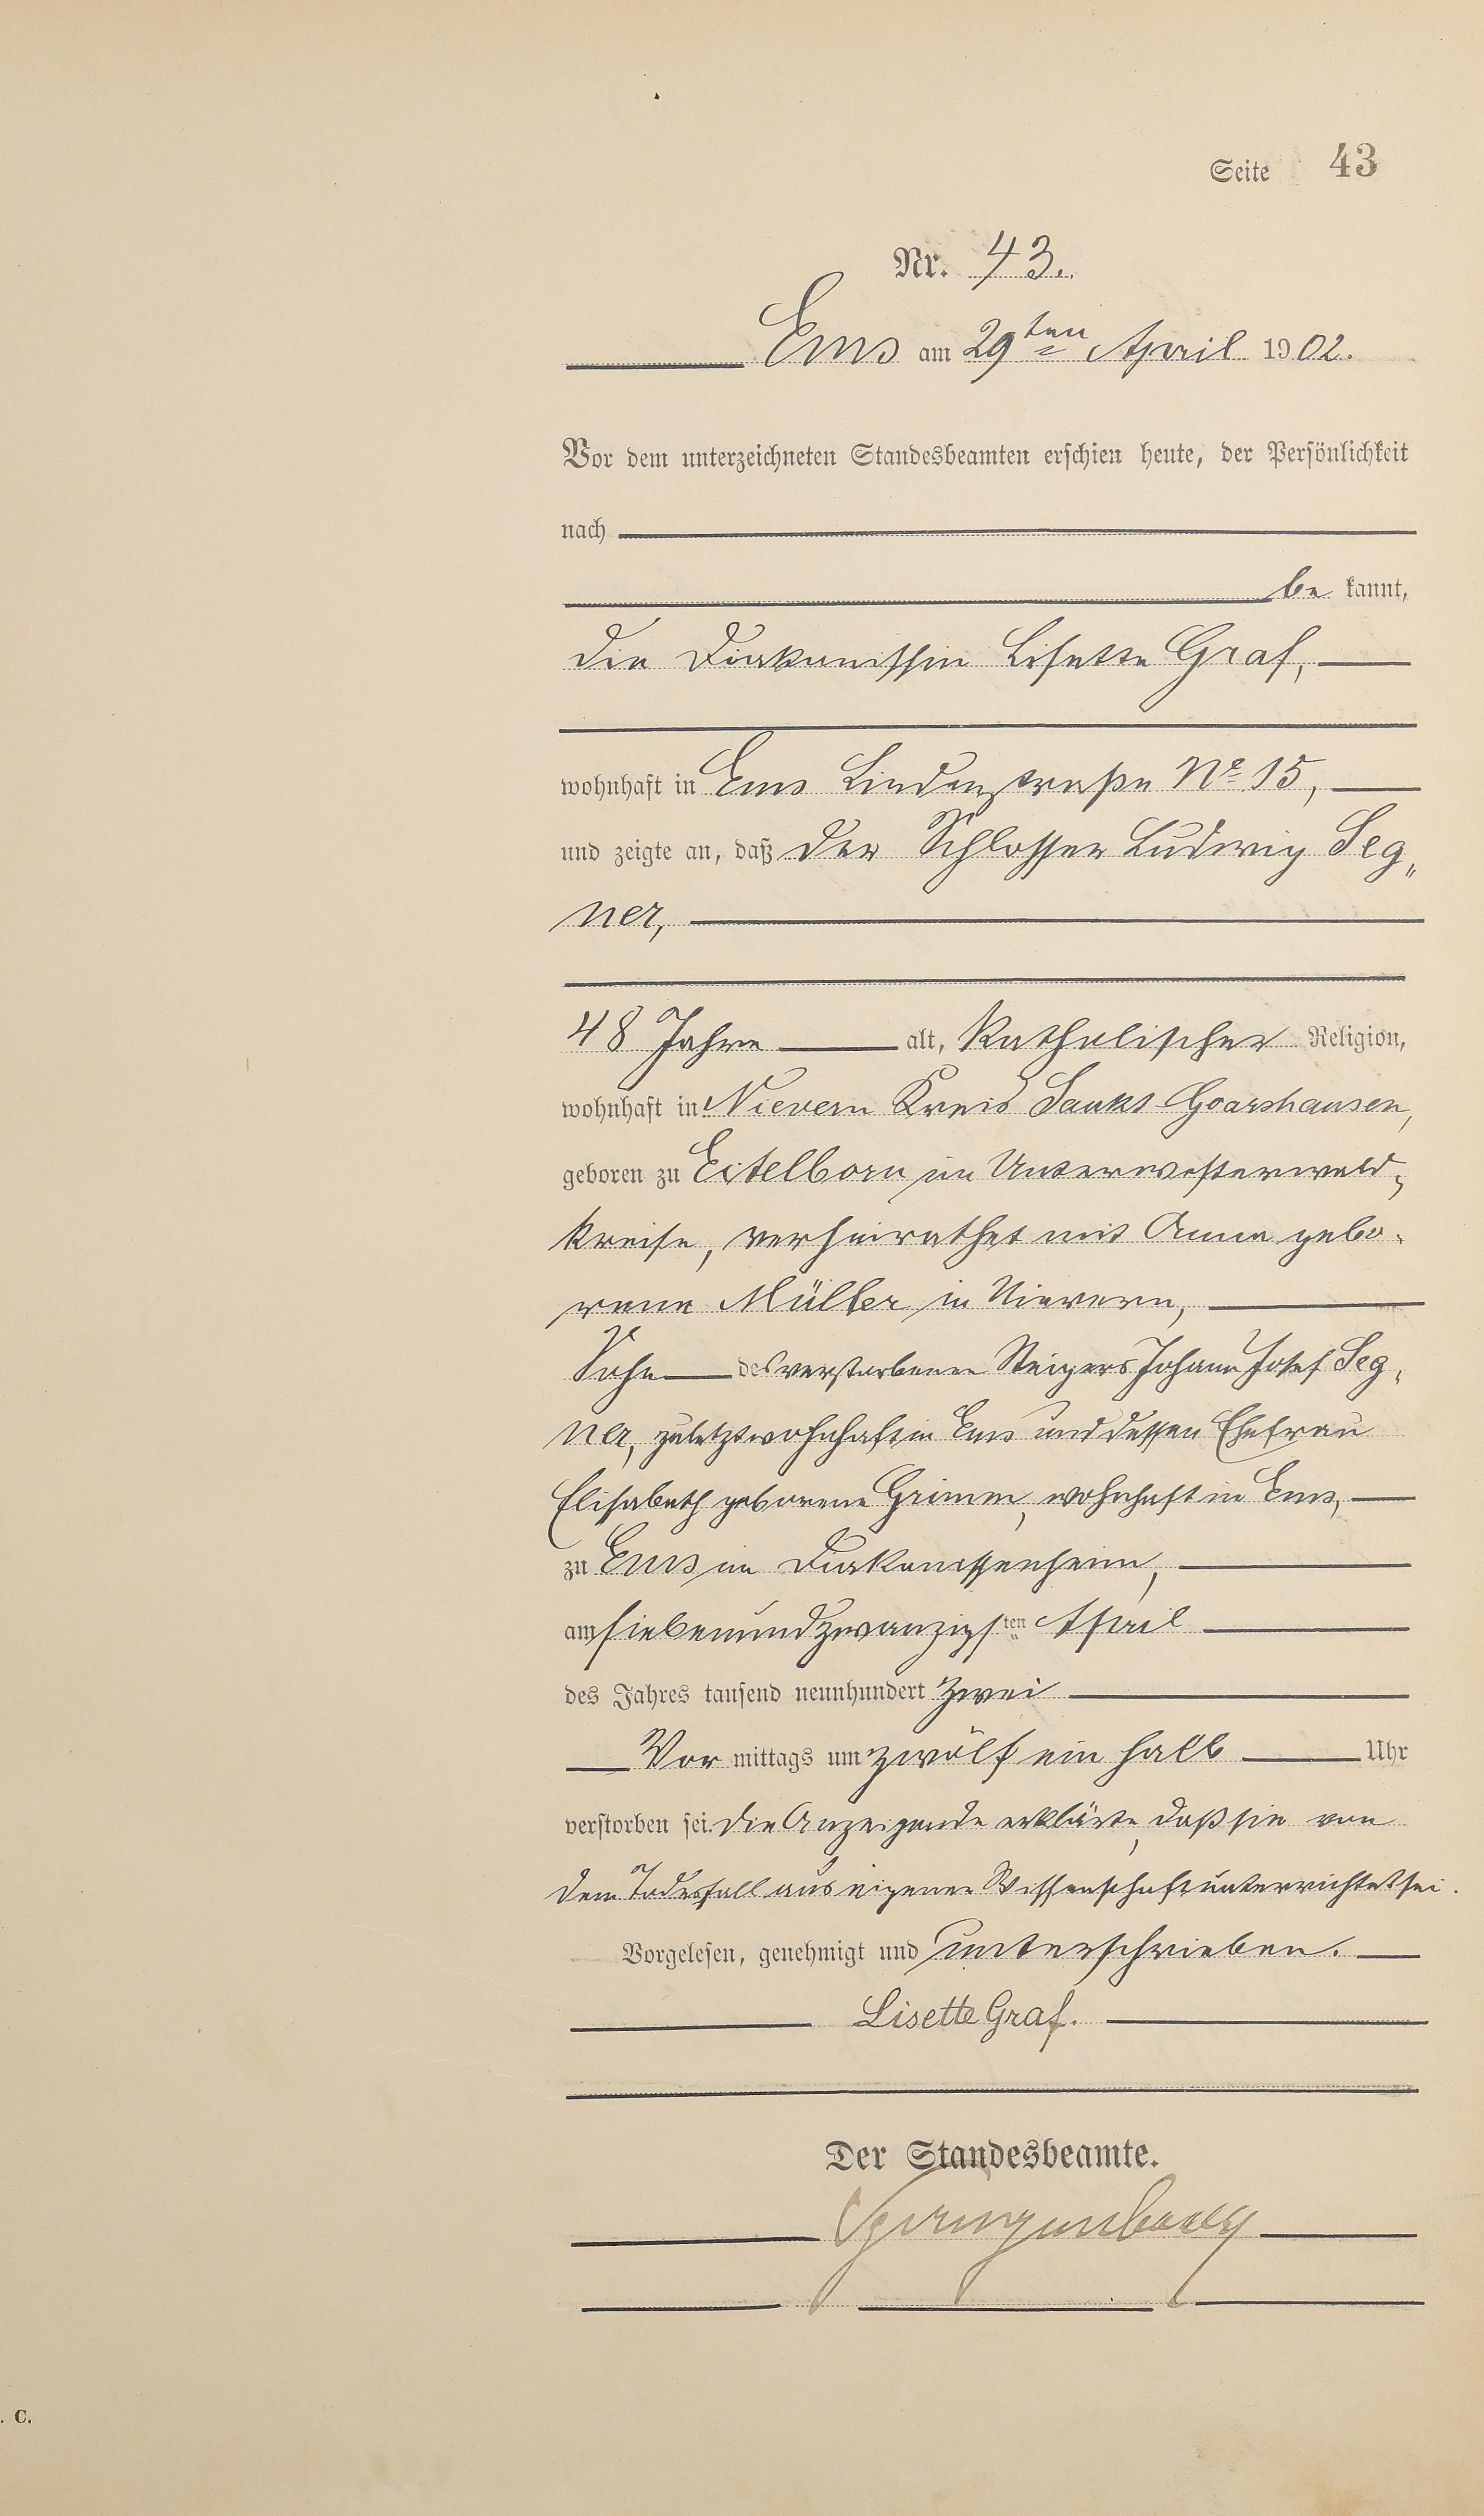 Seite 43
Nr. 43.
Ems am 29ten April 1902.
Vor dem unterzeichneten Standesbeamten erschien heute, der Persönlichkeit
nach
be kannt,
die Diakonissin Lisette Graf,
wohnhaft in Ems Lindenstraße No 15,
und zeigte an, daß der Schlosser Ludwig Seg„
ner,
48 Jahre alt, katholischer Religion,
wohnhaft in Nievern Kreis Sankt Goarshausen,
geboren zu Eitelborn im Unterwesterwald-
kreise, verheirathet mit Anna gebo-
rene Müller in Nievern,
Sohn des verstorbenen Steigers Johann Josef Seg-
ner, zuletzt wohnhaft in Ems und dessen Ehefrau
Elisabeth geborene Grimm, wohnhaft in Ems,
zu Ems im Diakonissenheim,
am siebenundzwanzigsten April
des Jahres tausend neunhundert zwei
Vor mittags um zwölf ein halb Uhr
verstorben sei. Die Anzeigende erklärte, daß sie von
dem Todesfall aus eigener Wissenschaft unterrichtet sei.
Vorgelesen, genehmigt und unterschrieben.
Lisette Graf.
Der Standesbeamte.
. C.